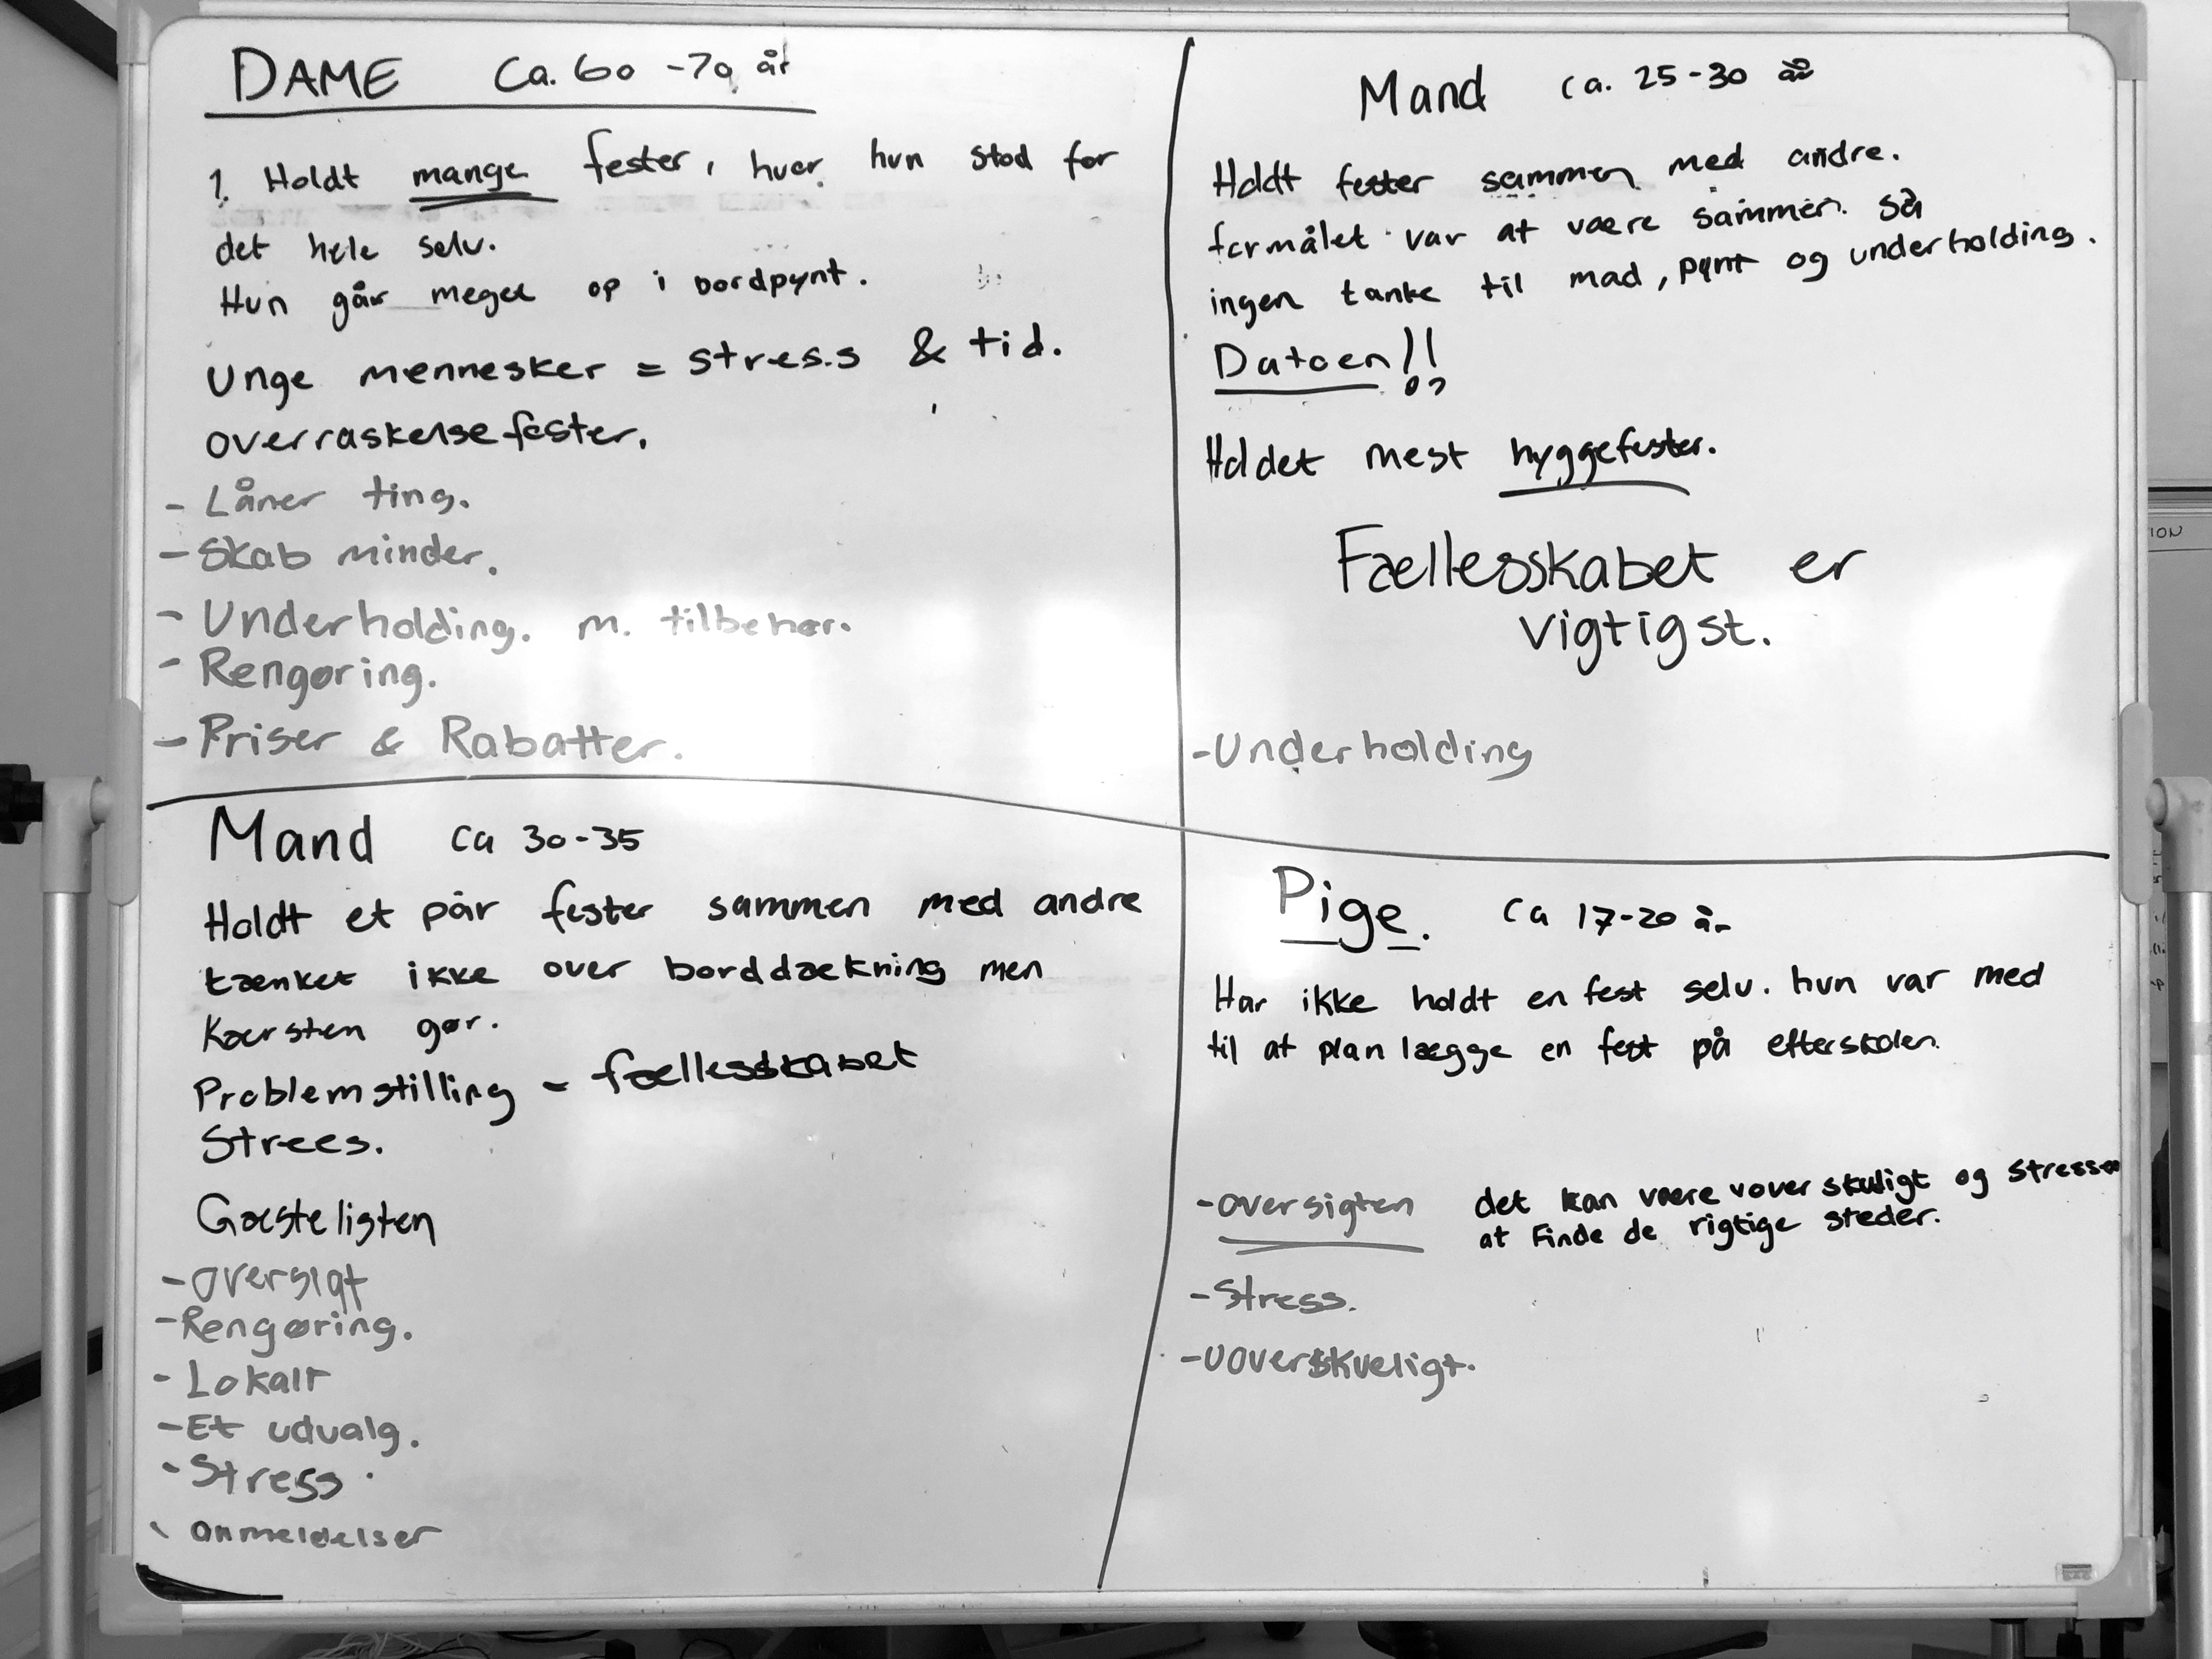 DAME ca. 60-70 år
1. Holdt mange fester, hvor hun stod for
det hele selv.
Hun går meget op i bordpynt.
Unge mennesker = stress & tid.
overraskelsefester.
- Låner ting.
- Skab minder.
- Underholding. m. tilbehør.
- Rengøring.
- Priser & Rabatter.
Mand ca. 25-30 år
Holdt fester sammen med andre.
formålet var at være sammen. Så
ingen tanke til mad, pynt og underholding.
Datoen!!
Holdet mest hyggefester.
Fællesskabet er
vigtigst.
- Underholding
Mand ca 30-35
Holdt et pår fester sammen med andre
tænket ikke over borddækning men
Kærsten gør.
Problemstilling - fællesskabet
Strees.
Gæstelisten
- oversigt
- Rengøring.
- Lokalt
- Et udvalg.
- Stress
- anmeldelser
Pige. ca 17-20 år
Har ikke holdt en fest selv. hun var med
til at planlægge en fest på efterskolen.
- oversigten det kan være uoverskuligt og
at Finde de rigtige steder.
- Stress.
- Uoverskueligt.
ION